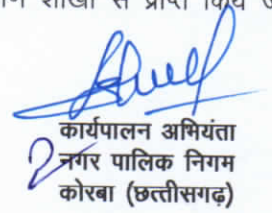 शाखा से प्राप्त किये
कार्यपालन अभियंता
नगर पालिक निगम
कोरबा (छत्तीसगढ़)